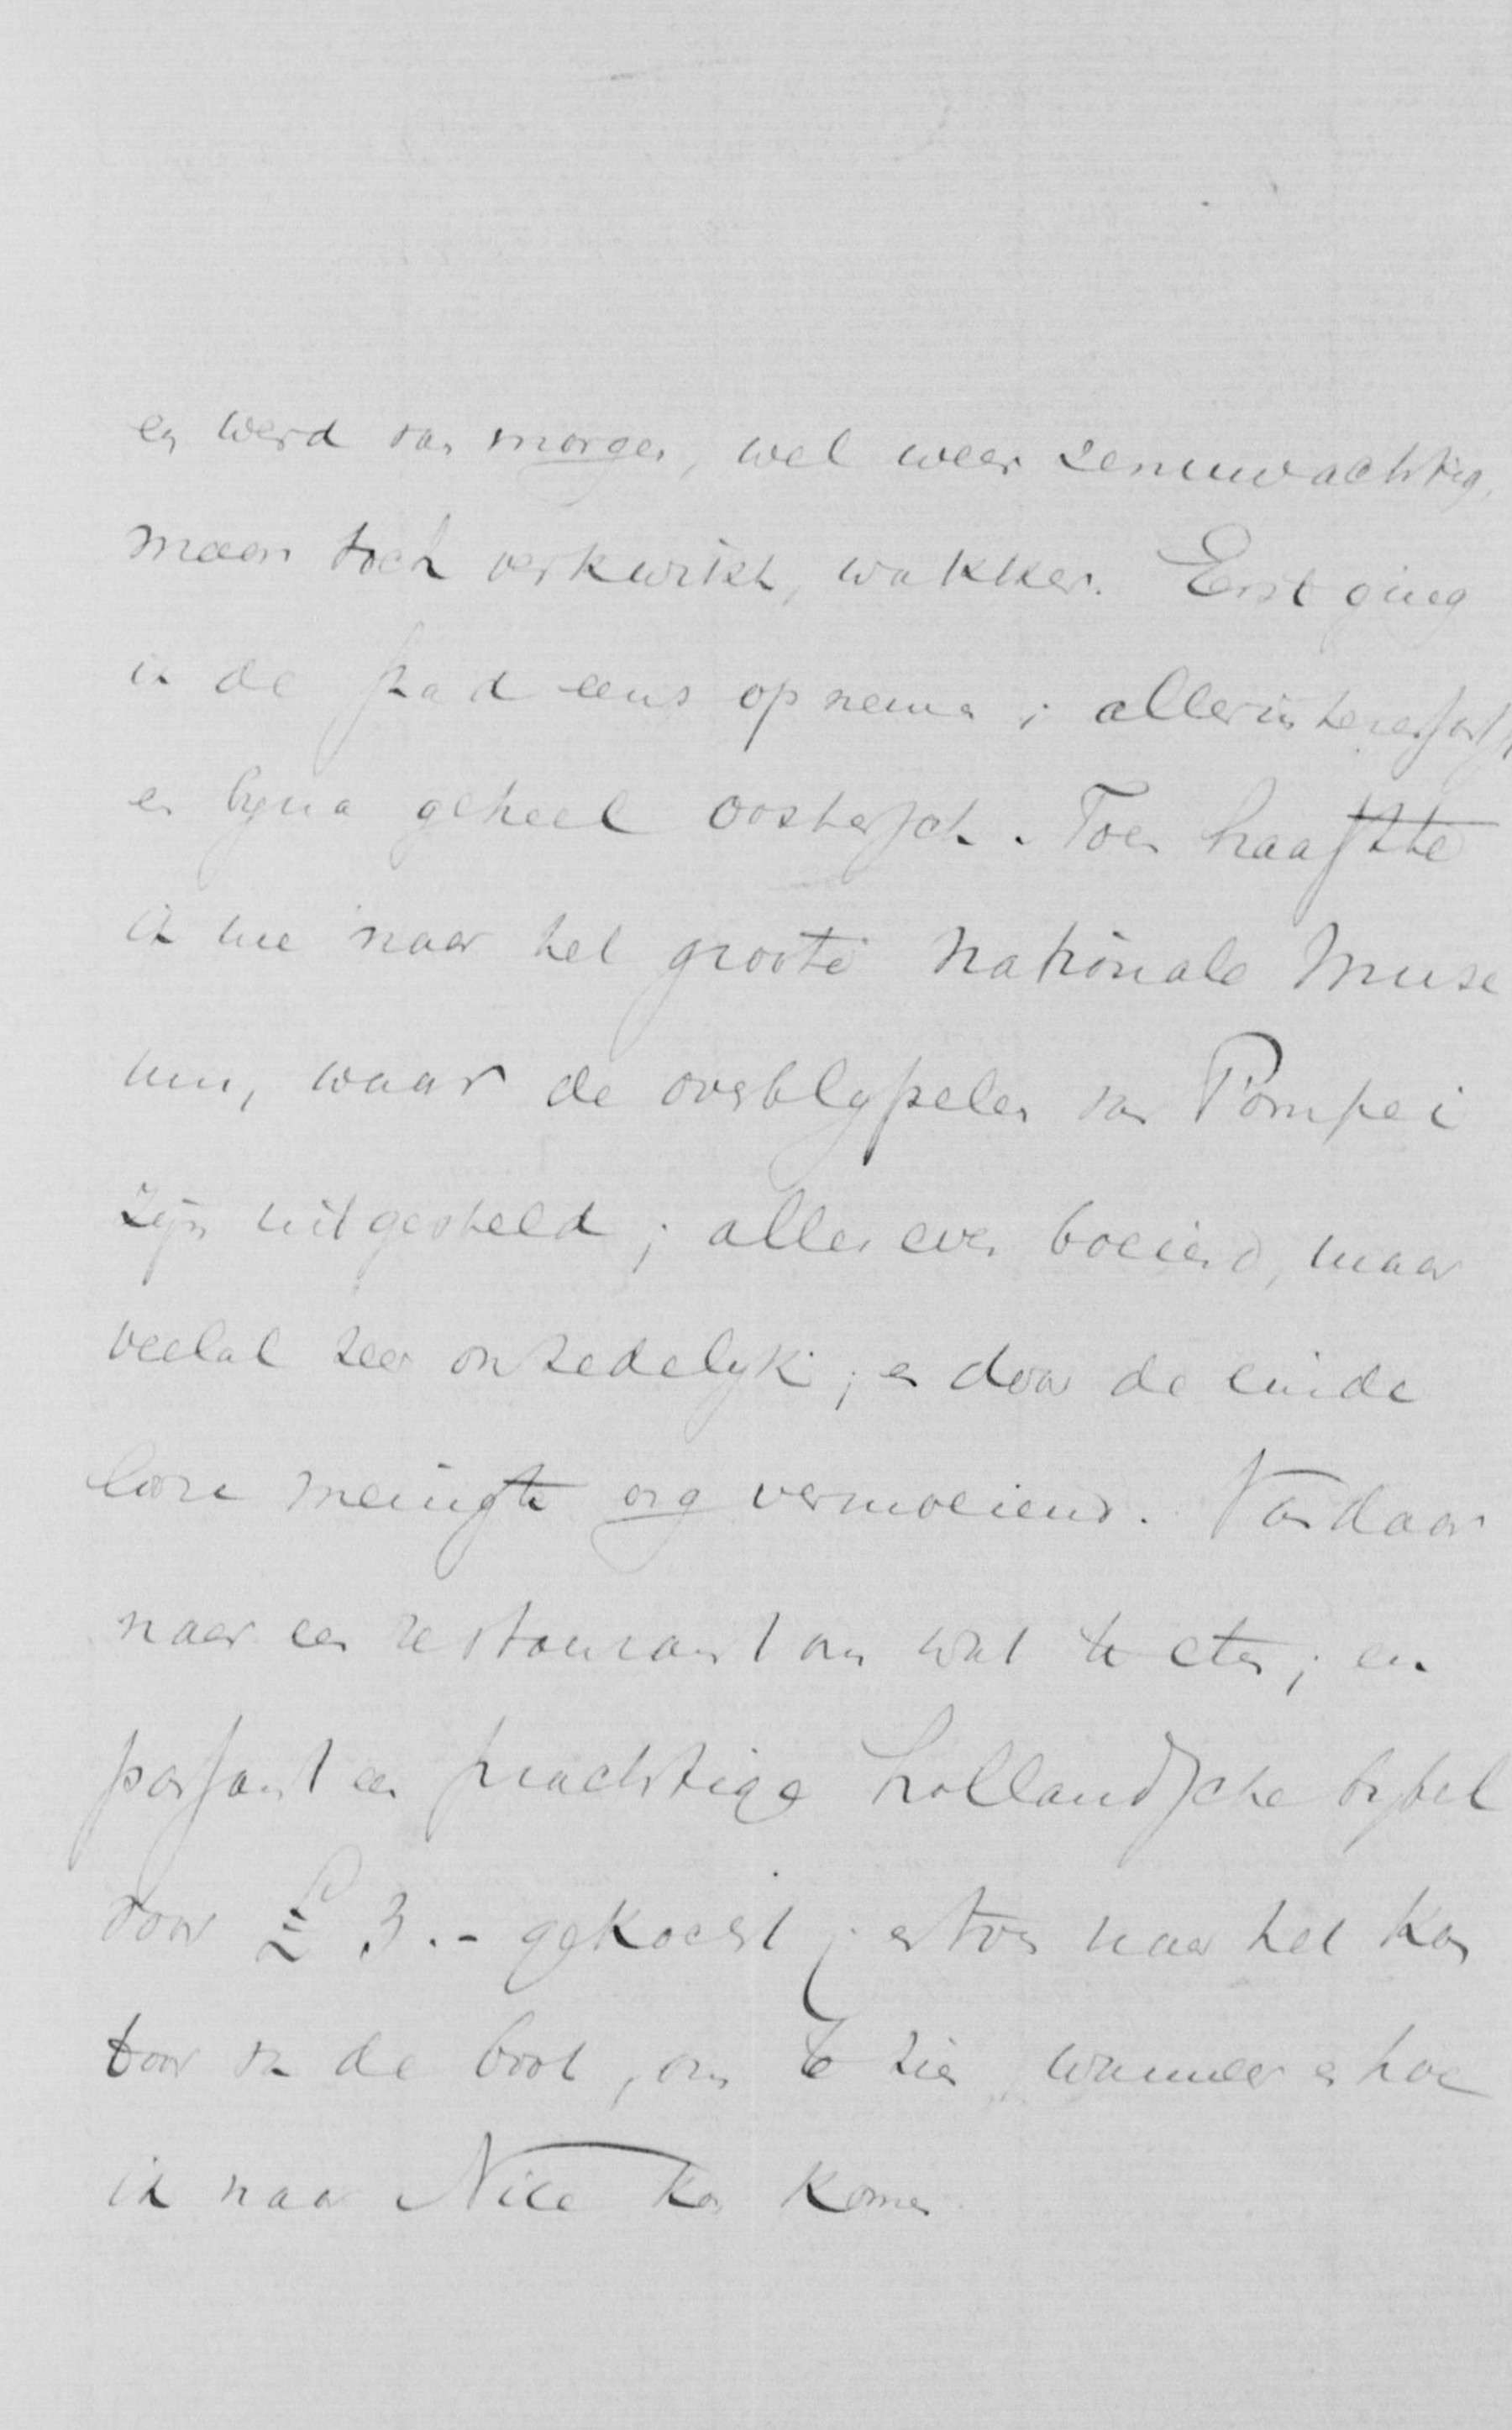 en werd van morgen, wel weer zenuwachtig,
maar toch verkwikt, wakker. Eerst ging
ik de stad eens opnemen; allerinteressantst
en byna geheel oostersch. Toen haastte
ik me naar het groote Nationale Muse
um, waar de overblyfselen van Pompei
zijn uitgesteld; alles even boeiend, maar
veelal zeer onzedelyk; en door de einde
looze meenigte erg vermoeiend. Van daar
naar een restaurant om wat te eten; en
passant een prachtige hollandsche bybel
voor £ 3.- gekocht; en toen naar het kan
toor van de boot, om te zien wanneer en hoe
ik naar Nice kan komen